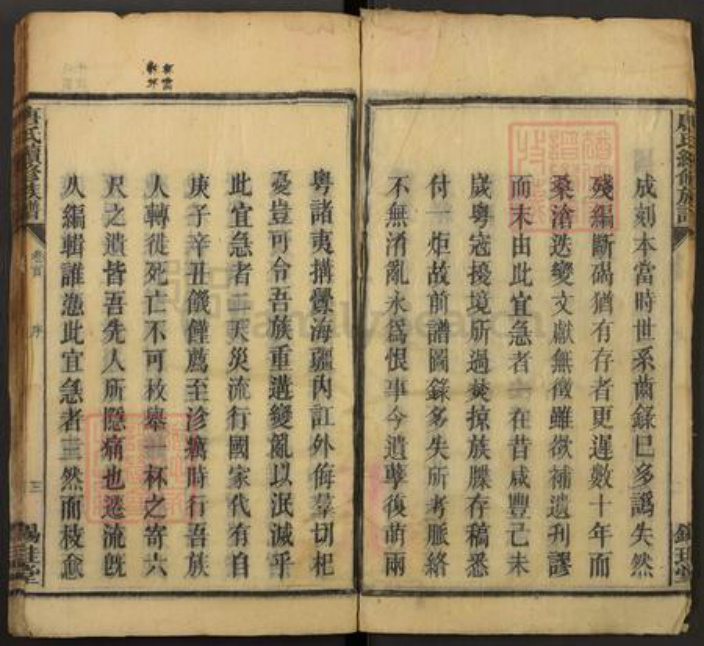 成刻本當時世系齒錄已多譌失然
殘編斷碣猶有存者更遲數十年而
桑滄迭變文獻無徵雖欲補遺刊謬
而末由此宜急者
在昔咸豐己未
歲粵寇擾境所過焚掠族牒存稿悉
付一炬故前譜圖錄多失所考脈絡
不無淆亂永爲恨事今遺孽復萌兩
粵諸夷搆釁海疆內訌外侮羣切杞
憂豈可令吾族重遘變亂以泯滅乎
此宜急者二天災流行國家代有自
庚子辛丑饑饉薦至沴癘時行吾族
人轉徙死亡不可枚舉
杯之寄六
尺之遺皆吾先人所隱痛也遷流旣
久編輯誰憑此宜急者三然而枝愈
氏續修族譜
卷首
序
三
錫
堂
familysearch